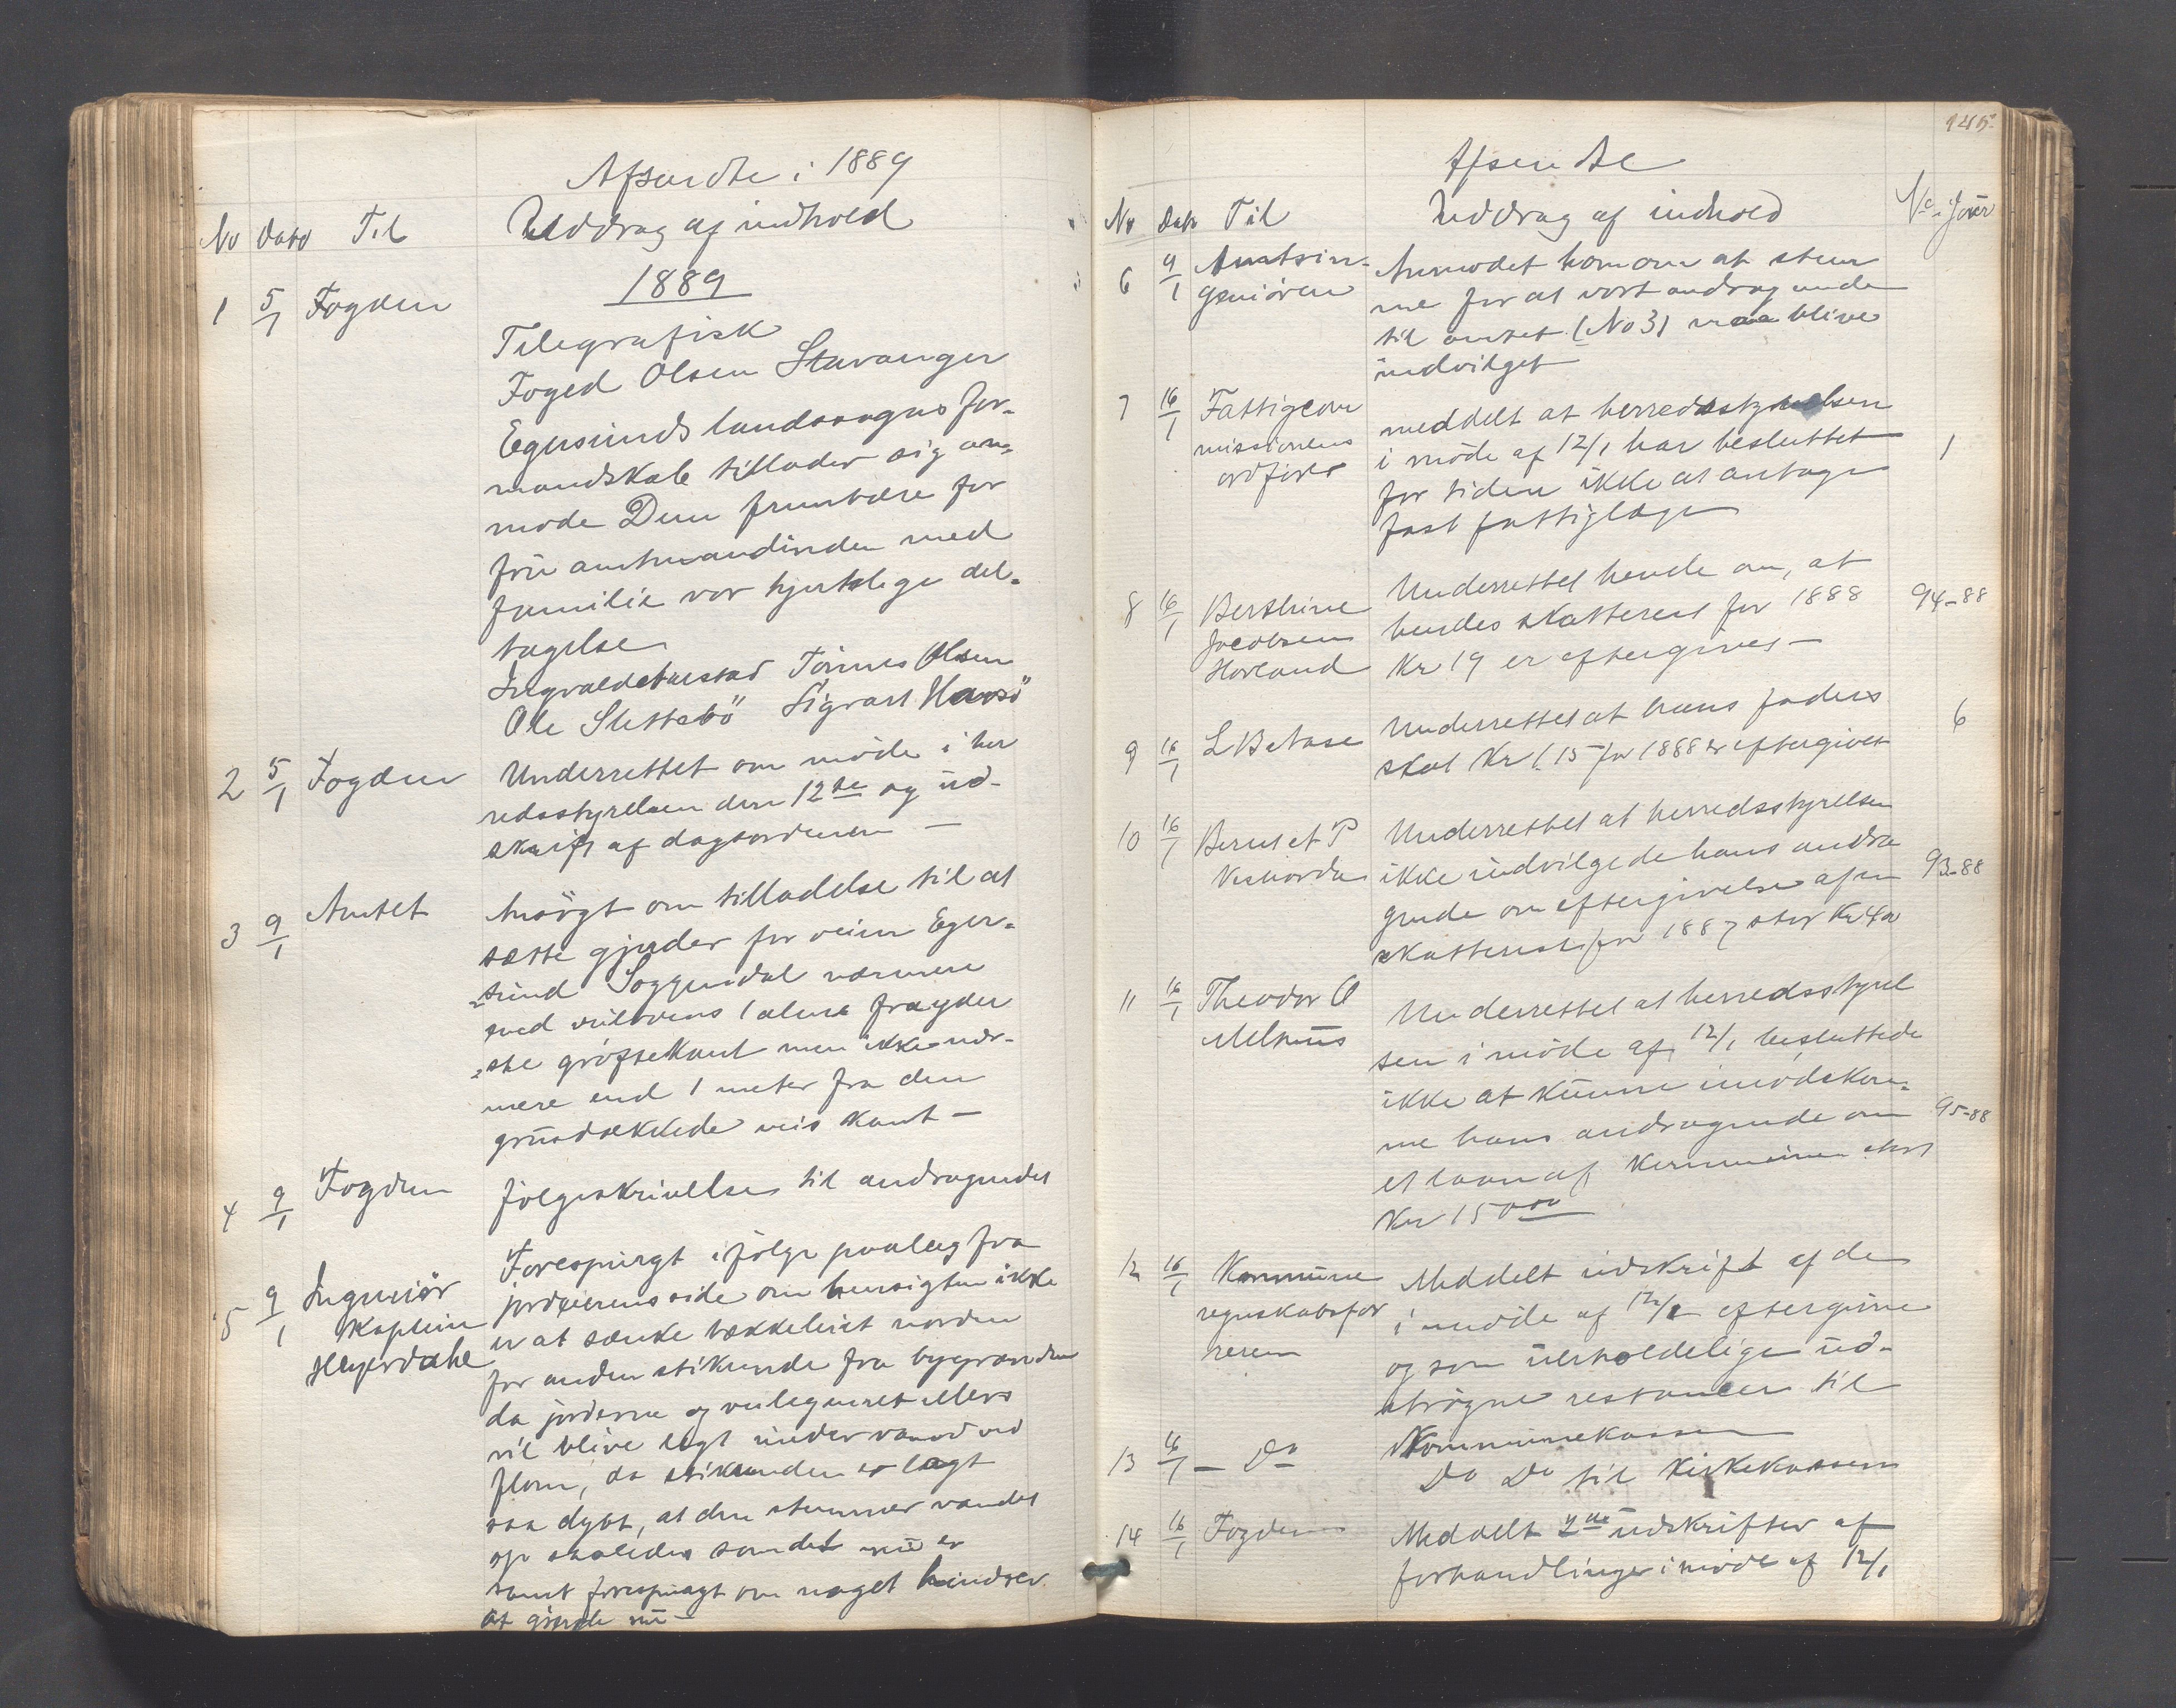 Afsendte i 1889
No Dato Til Uddrag af indhold
1889
1 5/1 Fogden
Telegrafisk
Foged Olsen Stavanger
Egersunds landssogns for-
mandskab tillader sig an-
mode Dem frembære for
frü amtmandinden med
familie vor hjertelige del-
tagelse
Tönnes Olsen
Ole Slettebö Sigvart Havsö
2 5/1 Fogden Underrettet om möde i her
redsstyrelsen den 12te og üd-
skrift af dagsordenen —
3 9/1 Amtet Ansögt om tilladelse til at
sætte gjerder for veien Eger-
sünd Soggendal nærmere
end veilovens 1 alen fra yder
ste gröftekant men ikke nær-
mere end 1 meter fra den
grüsdækkede veis kant —
4 9/1 Fogden Fölgeskrivelse til andragendet
5 9/1 Ingeniör Kaptein Heyerdahl
Forespürgt ifölge paalæg fra
jordeierens side om hensigten ikke
er at sænke bækkeleiet norden
for anden stikrende fra bygrænden
da jorderne og veilegemet ellers
vil blive lagt ünder vand ved
flom, da stikrenden er lagt
saa dybt, at den stemmer vandet
op saaledes som det nü er
samt forespürgt om noget hindrer
at gjerde nü —
145
Afsendte
No Dato Til Uddrag af indhold No i Joür
6 9/1 Amtsin- Anmodet ham om at stem
geniören me for at vort andragende
til amtet (No 3) maa blive
indvilget
7 16/1 Fattigcom meddelt at herredsstyrelsen
missionens i möde af 12/1 har besluttet 1
ordförer for tiden ikke at antage
fast fattiglæge
8 16/1 Berthine Underrettet hende om, at
Jacobsen hendes skatterest for 1888 94-88
Hovland Kr 19 er eftergivet —
9 16/1 L B Aase Underrettet at hans faders 6
skat Kr 1.15 for 1888 er eftergivet
10 16/1 Berent P Underrettet at herredsstyrelsen
ikke indvilgede hans andra
gende om eftergivelse af en 93-88
skatterest for 1887 stor Kr
11 16/1 Theodor O Underrettet at herredsstyrel
Melhüs sen i möde af 12/1 besluttede
ikke at künne imödekom-
me hans andragende om 95-88
et laan af Kommünen stort
Kr 1500
12 16/1 Kommüne Meddelt üdskrift af de
regnskabsför i möde af 12/1 eftergivne
reren og som üerholdelige üd-
strögne restancer til
Kommünekassen
13 16/1 — Do Do Do til Kirkekassen
14 16/1 Fogden Meddelt 2de üdskrifter af
forhandlinger i möde af 12/1